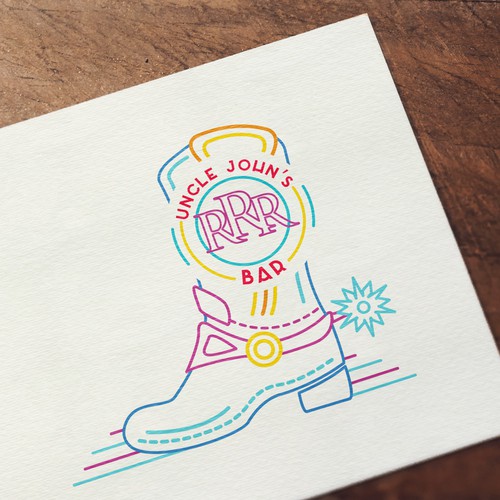 UNCLE JOHN'S
RRR
BAR